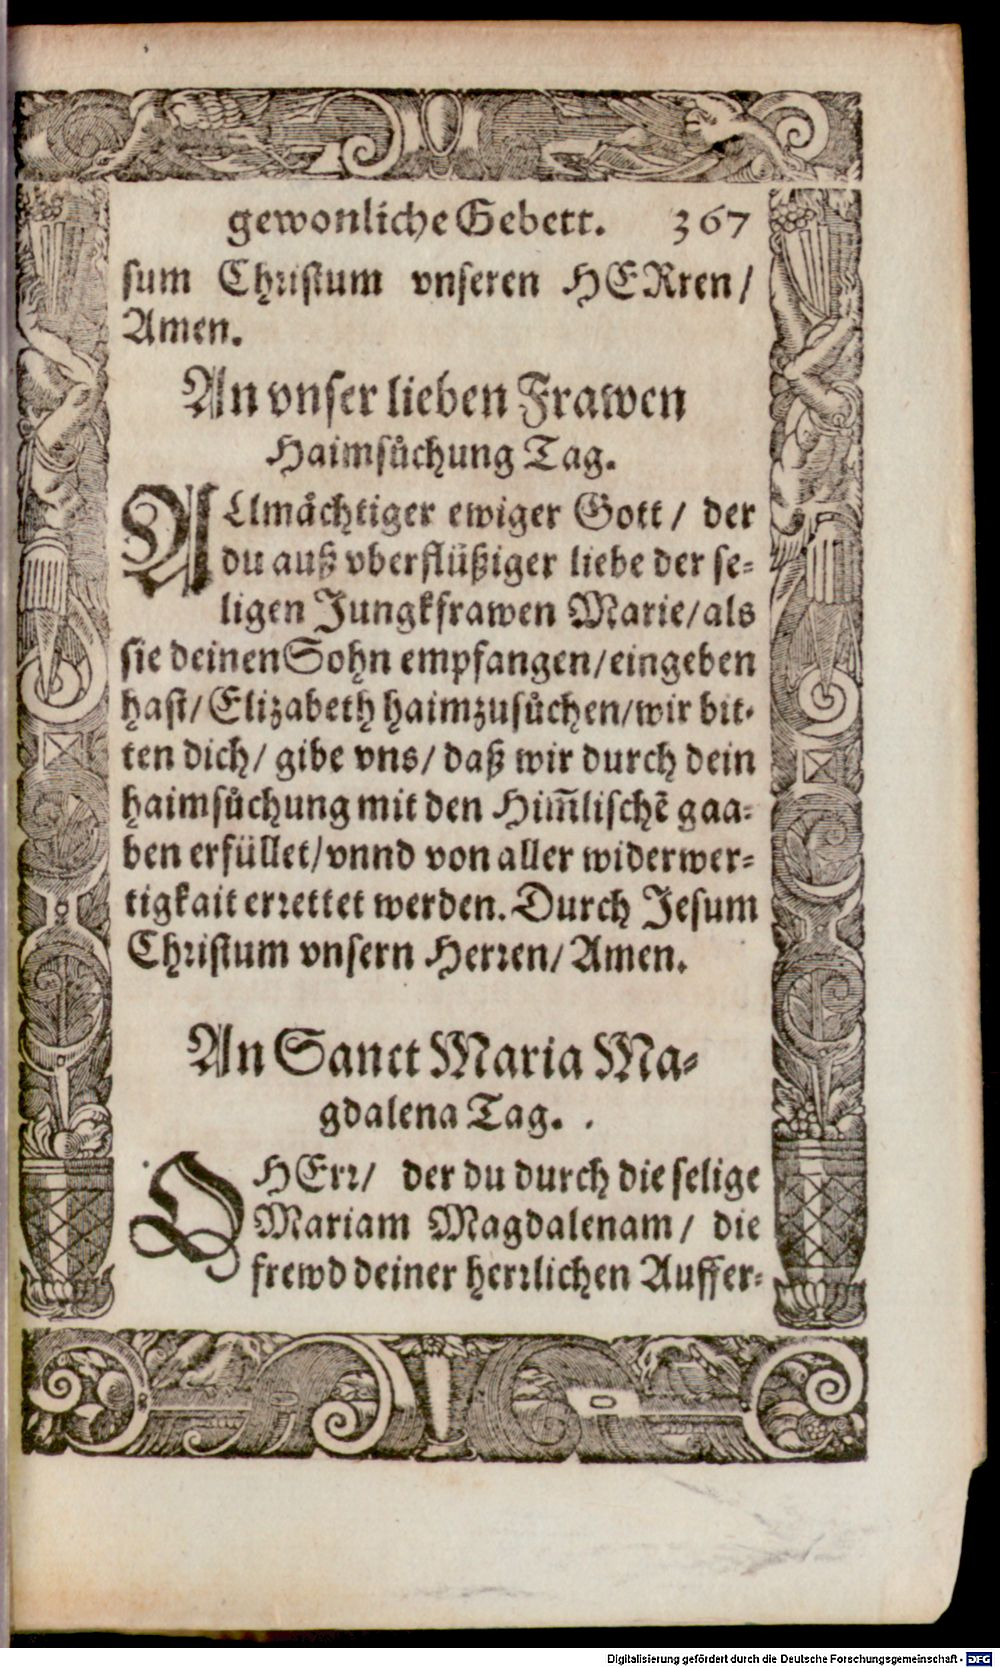 gewonliche Gebett. 367
sum Christum vnseren HERren/
Amen.
An vnser lieben Frawen
Haimsůchung Tag.
ALlmåchtiger ewiger Gott/ der
du auß vberflüßiger liebe der se-
ligen Jungkfrawen Marie/als
sie deinen Sohn empfangen/eingeben
hast/Elizabeth haimzusůchen/wir bit-
ten dich/ gibe vns/ daß wir durch dein
haimsůchung mit den Him̃lischẽ gaa-
ben erfüllet/vnnd von aller widerwer-
tigkait erꝛettet werden. Durch Jesum
Christum vnsern Herꝛen/Amen.
An Sanct Maria Ma-
gdalena Tag.
O HErꝛ/ der du durch die selige
Mariam Magdalenam/ die
frewd deiner herꝛlichen Auffer-
Digitalisierung gefördert durch die Deutsche Forschungsgemeinschaft - DFG